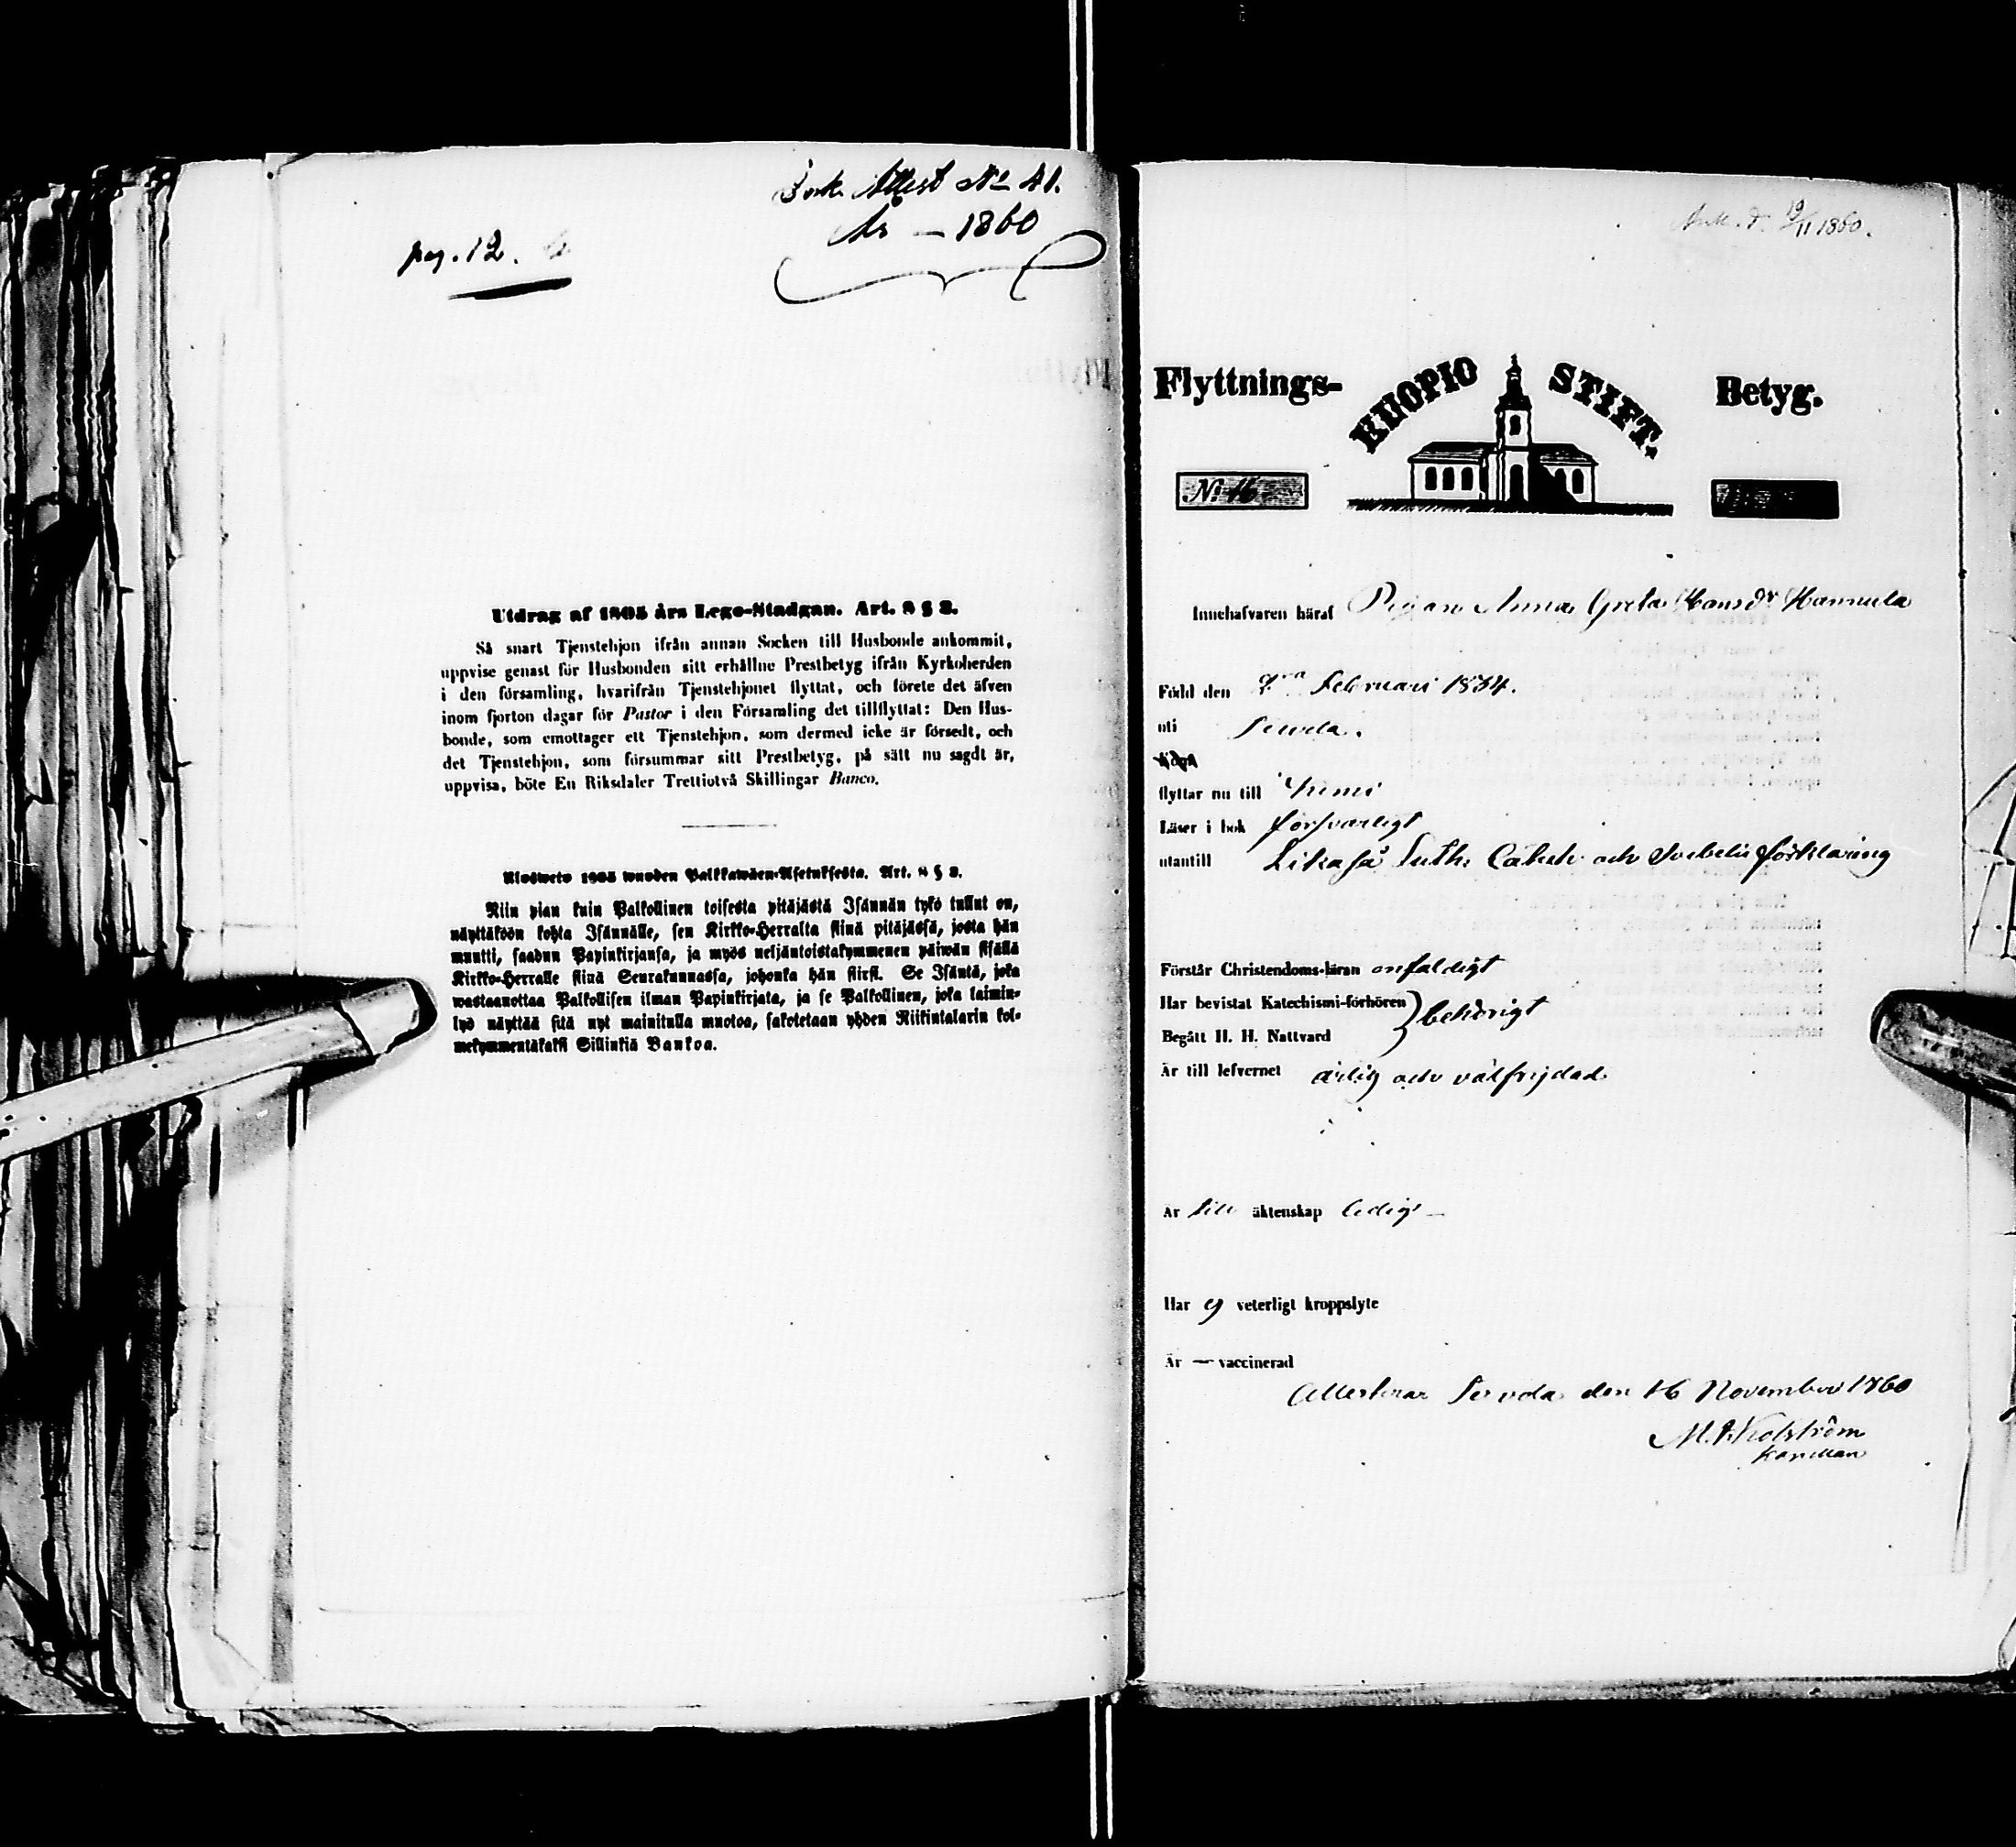 Ink. Attest No 41.
År — 1860
pag. 12.
Utdrag af 1805 års Lego-Stadgan. Art. 8 § 3.
Så snart Tjenstehjon ifrån annan Socken till Husbonde ankommit,
uppvise genast för Husbonden sitt erhållne Prestbetyg ifrån Kyrkoherden
i den församling, hvarifrån Tjenstehjonet flyttat, och förete det äfven
inom fjorton dagar för Pastor i den Församling det tillflyttat: Den Hus-
bonde, som emottager ett Tjenstehjon, som dermed icke är försedt, och
det Tjenstehjon, som försummar sitt Prestbetyg, på sätt nu sagdt är,
uppvisa, böte En Riksdaler Trettiotvå Skillingar Banco.
Ulosweto 1805 wuoden Palkkawäen-Asetuksesta. Art. 8 § 3.
Niin pian kuin Palkollinen toisesta pitäjästä Isännän tykö tullut on,
näyttäköön kohta Isännälle, sen Kirkko-Herralta siinä pitäjässä, josta hän
muutti, saadun Papinkirjansa, ja myös neljäntoistakymmenen päiwän sisällä
Kirkko-Herralle siinä Seurakunnassa, johonka hän siirsi. Se Isäntä, joka
wastaanottaa Palkollisen ilman Papinkirjata, ja se Palkollinen, joka laimin-
lyö näyttää sitä nyt mainitulla muotoa, sakotetaan yhden Riikintalarin kol-
mekymmentäkaksi Sillinkiä Bankoa.
Ank. d. 19/11 1860.
Flyttnings- KUOPIO STIFT. Betyg.
No 16
Innehafvaren häraf Pigan Anna Greta Hansdr Hannula
Född den Februari 1834.
uti Servola.
flyttar nu till Kemi
Läser i bok försvarligt
utantill Likaså Luth. Catech. och Svebelii förklaring
Förstår Christendoms-läran enfaldigt
Har bevistat Katechismi-förhören } behörigt
Begått H. H. Nattvard
Är till lefvernet ärlig och välfrejdad
Är till äktenskap ledig —
Har ej veterligt kroppslyte
Är — vaccinerad
Attesterar Servola den 16 November 1860